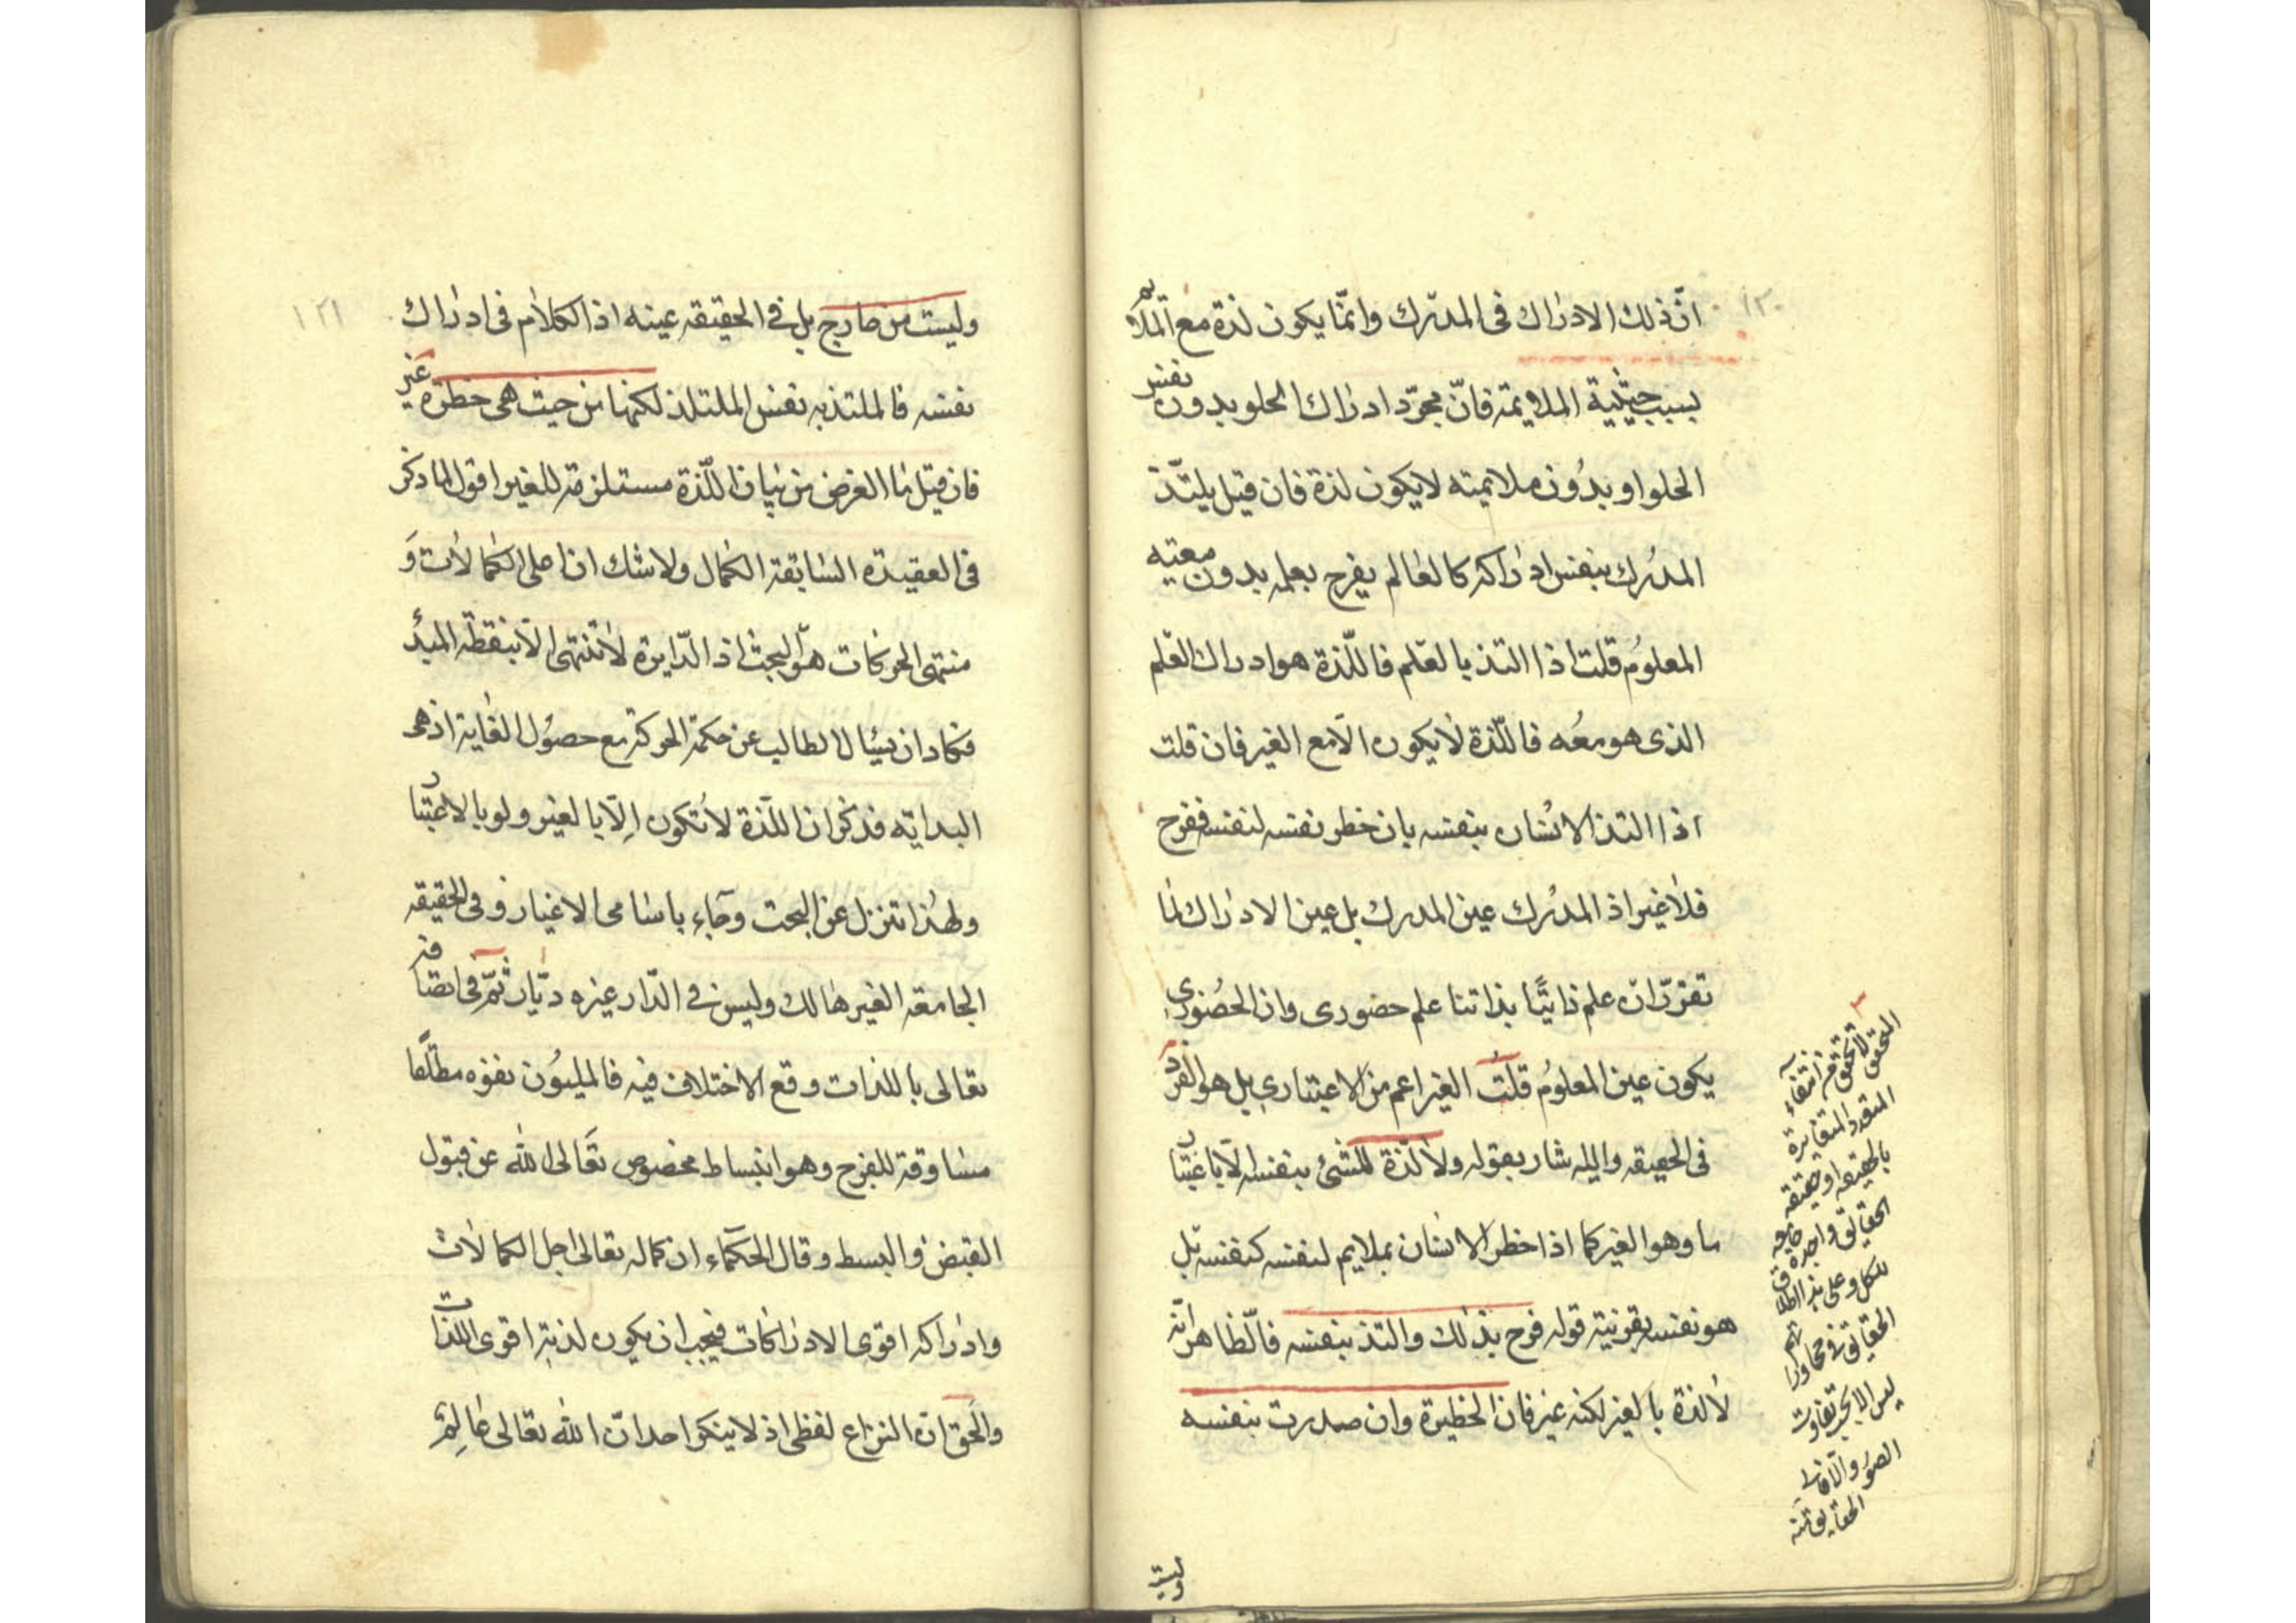 ١٢٠
انّ ذلك الادراك فى المدرك وانّما يكون لذة مع الملايم
بسبب حيثية الملايمة فانّ مجرّد ادراك الحلو بدون نفس
الحلو او بدون ملايمته لا يكون لذة فان قيل يلتذّ
المدرك بنفس ادراكه كالعالم يفرح بعلمه بدون معيته
المعلوم قلت اذا التذ بالعلم فاللّذة هو ادراك العلم
الذى هو معه فاللّذة لا يكون الّا مع الغير فان قلت
اذا التذ الانسان بنفسه بان خطر نفسه لنفسه ففرح
فلا غير اذ المدرك عين المدرك بل عين الادراك لما
تقرّر انّ علم ذاتيّا بذاتنا علم حضورى وان الحضورى
يكون عين المعلوم قلت الغير اعم من الاعتبارى بل هو الفرد
فى الحقيقه واليه شار بقوله ولا لذة للشئ بنفسه الّا باعتبار
ما وهو الغير كما اذا خطر الانسان بملايم لنفسه كنفسه بل
هو نفسه بقرينة قوله فرح بذلك والتذ بنفسه فالّظاهر انّه
لا لذة بالغير لكنه غير فان الخطيرة وان صدرت بنفسه
التحقق
المتعدد المتغايرة
بالحقيقه او حقيقه
الحقايق واحدة
للكل وعلى هذا اطلاق
الحقايق فى محاوراتهم
ليس الا بحسب تفاوت
الصور والّافا
الحقايق
وليست
١٢١
وليست من خارج بل فى الحقيقه عينه اذ الكلام فى ادراك
نفسه فالملتذ به نفس الملتلذ لكنها من حيث هى خطرة غير
فان قيل ما الغرض من بيان اللّذة مستلزمة للغير اقول لما ذكر
فى العقيدة السابقة الكمال ولا شك ان اصلى الكمالات وَ
منتهى الحركات هو البحث اذ الدّايرة لا تنتهى الّا بنقطة المبدٔ
فكاد ان يسٔال الطالب عن حكمة الحركة مع حصول الغاية اذ هى
البداية فذكر ان اللّذة لا تكون الّا بالغير ولو بالاعتبار
ولهذا تنزل عن البحث وجاء باسامى الاغيار وفى الحقيقه
الجامعة الغير هالك وليس فى الدّار غيره ديّار ثمّ فى اتصافه
تعالى باللذات وقع الاختلاف فيه فالمليون نفوه مطلقا
مساوقة للفرح وهو انبساط مخصوص تعَالى الله عن قبول
القبض والبسط وقال الحكماء ان كماله تعالى اجل الكمالات
وادراكه اقوى الادراكات فيجب ان يكون لذته اقوى اللذات
والحق انّ النزاع لفظى اذ لا ينكر احد انّ الله تعالى عالم